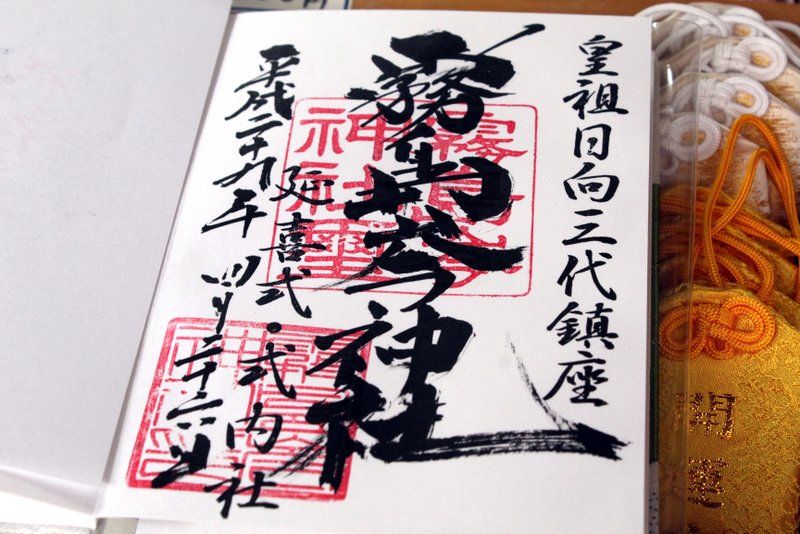 皇祖日向三代鎮座
霧島岑神社
延喜式・式内社
平成二十九年 四月二十六日
開運